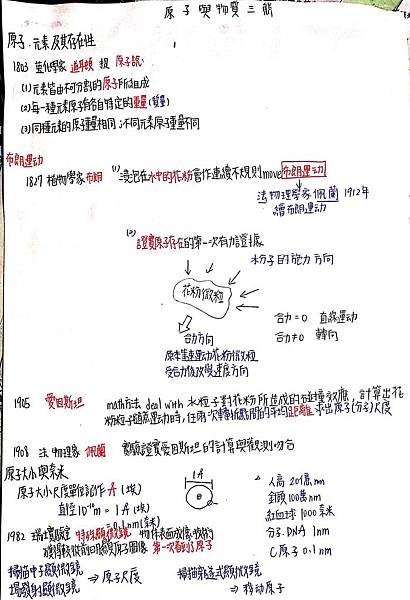 原子與物質三態
原子、元素及其存在性
1803 英化學家 道耳頓 提 原子說:
(1)元素皆由不可分割的原子所組成
(2)每一種元素原子有各自特定的重量(質量)
(3)同種元素的原子重量相同;不同元素原子重量不同
布朗運動
1827 植物學家布朗 (1)浸泡在水中的花粉會作連續不規則move 布朗運動
法物理學家佩蘭 1912年
繪布朗運動
(2)證實原子存在的第一次有力證據
水分子的施力方向
花粉微粒
合力=0 直線運動
合力≠0 轉向
合力方向
原本等速運動花粉微粒
受合力後改變速度方向
1905 愛因斯坦 math方法 deal with 水粒子對花粉所造成的碰撞效應,計算出花
粉粒子短距運動時,任兩次轉折點間的平均距離 求出原子(分子)尺度
1908 法 物理家 佩蘭 實驗證實愛因斯坦的計算與觀測吻合
原子大小與奈米
原子大小尺度單位記作 A (埃)
直徑 10⁻¹⁰m = 1A (埃)
= 0.1nm(奈米)
1A
人高 20億nm
針頭 100萬nm
紅血球 1000奈米
分子.DNA 1nm
C原子 0.1nm
1982 瑞士實驗室 特殊顯微鏡 物作表面成像技術
獲得較從前明晰原子圖像 第一次看到原子
掃描電子顯微鏡
場發射顯微鏡 ⇒ 原子尺度
掃描穿遂式顯微鏡
⇒ 移動原子